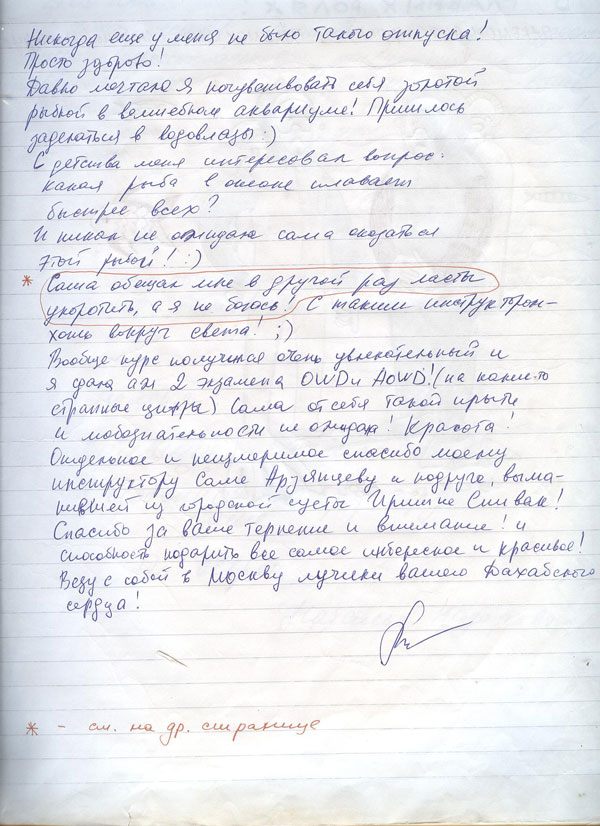 Никогда еще у меня не было такого отпуска!
Просто здорово!
Давно мечтала я почувствовать себя золотой
рыбкой в волшебном аквариуме! Пришлось
заделаться в водовлазы:)
С детства меня интересовал вопрос:
какая рыба в океане плавает
быстрее всех?
И никак не ожидала сама оказаться
этой рыбой! :)
* Саша обещал мне в другой раз ласты
укоротить, а я не боюсь! С таким инструктором-
хоть вокруг света! ;)
Вообще курс получился очень увлекательный и
я сдала аж 2 экзамена OWD и AOWD! (на какие-то
странные цифры) Сама от себя такой прыти
и любознательности не ожидала! Красота!
Отдельное и неизмеримое спасибо моему
инструктору Саше Арзянцеву и подруге, выма-
нившей из городской суеты Иришке Спивак!
Спасибо за ваше терпение и внимание! и
способность подарить все самое интересное и красивое!
Везу с собой в Москву лучики вашего Дахабского
сердца!
* - см. на др. странице